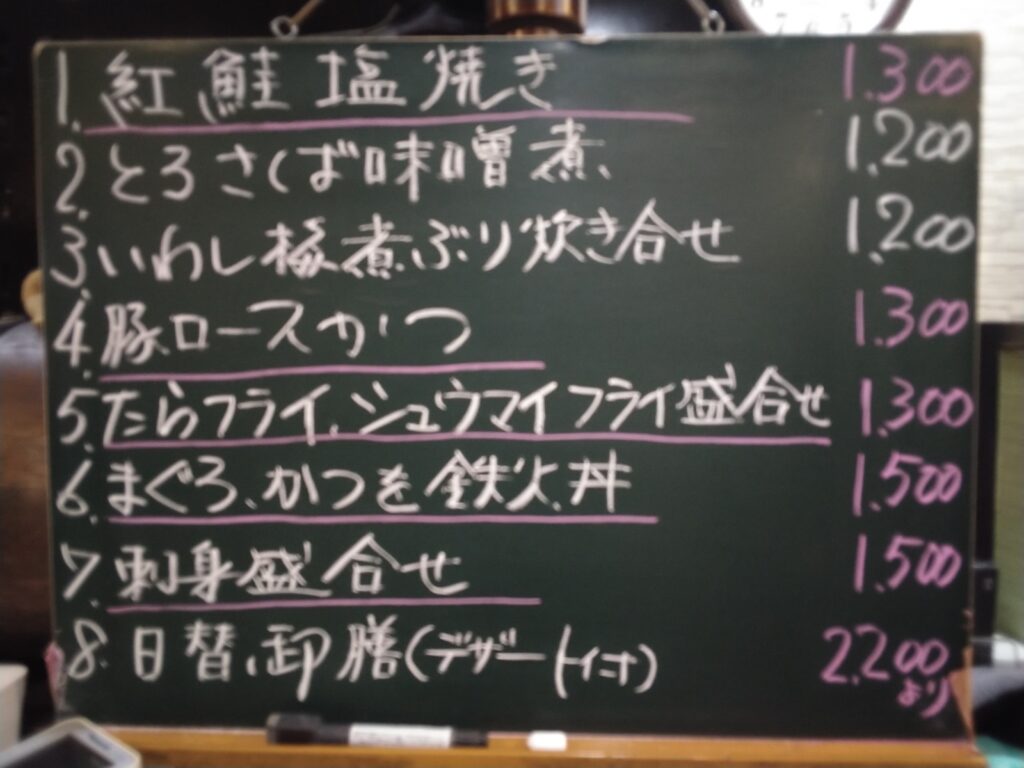 1. 紅鮭塩焼き 1.300
2. とろさば味噌煮 1.200
3. いわし梅煮、ぶり炊き合せ 1.200
4. 豚ロースかつ 1.300
5. たらフライ、シュウマイフライ盛合せ 1.300
6. まぐろ、かつを鉄火丼 1.500
7. 刺身盛合せ 1.500
8. 日替、御膳(デザート付) 2.200
より